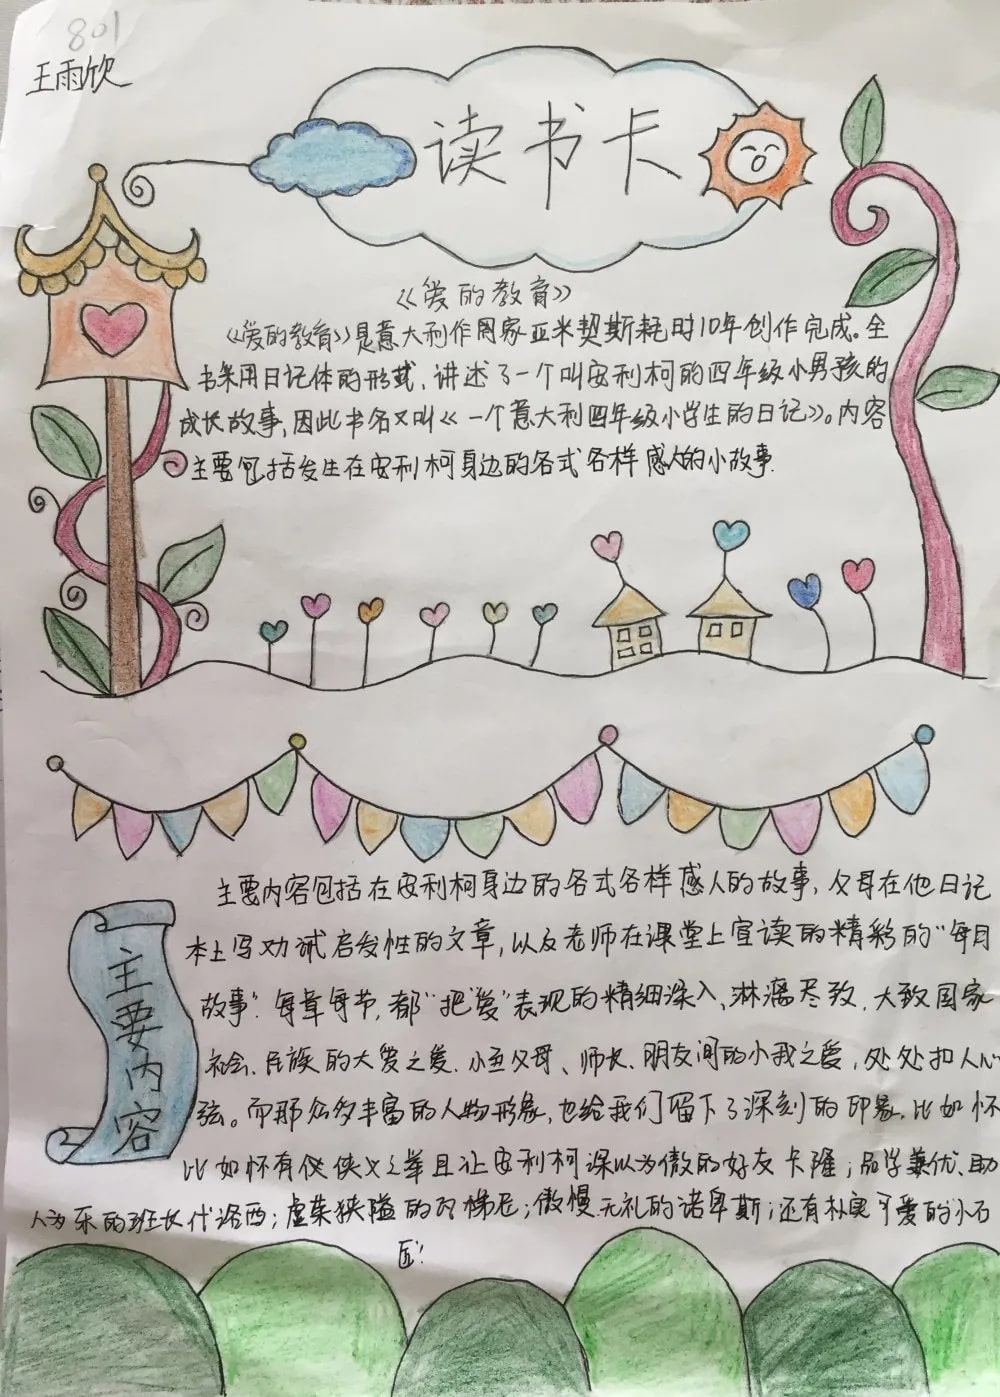 801
王雨欣
读书卡
《爱的教育》
《爱的教育》是意大利作周家亚米契斯耗时10年创作完成。全
书采用日记体的形式，讲述了一个叫安利柯的四年级小男孩的
成长故事，因此书名又叫《一个意大利四年级小学生的日记》。内容
主要包括发生在安利柯身边的各式各样感人的小故事.
主要内容
主要内容包括在安利柯身边的各式各样感人的故事，父母在他日记
本上写劝诫启发性的文章，以及老师在课堂上宣读的精彩的“每月
故事”.每章每节，都“把“爱”表现的精细深入、淋漓尽致，大致国家
社会、民族的大爱之爱.小至父母、师长、朋友间的小我之爱，处处扣人心
弦。而那众多丰富的人物形象，也给我们留下了深刻的印象，比如怀
比如怀有仗侠义之举且让安利柯深以为傲的好友卡隆；品学兼优、助
人为乐的班长代洛西；虚荣狭隘的梯尼；傲慢无礼的诺卑斯；还有朴实可爱的小石
匠！